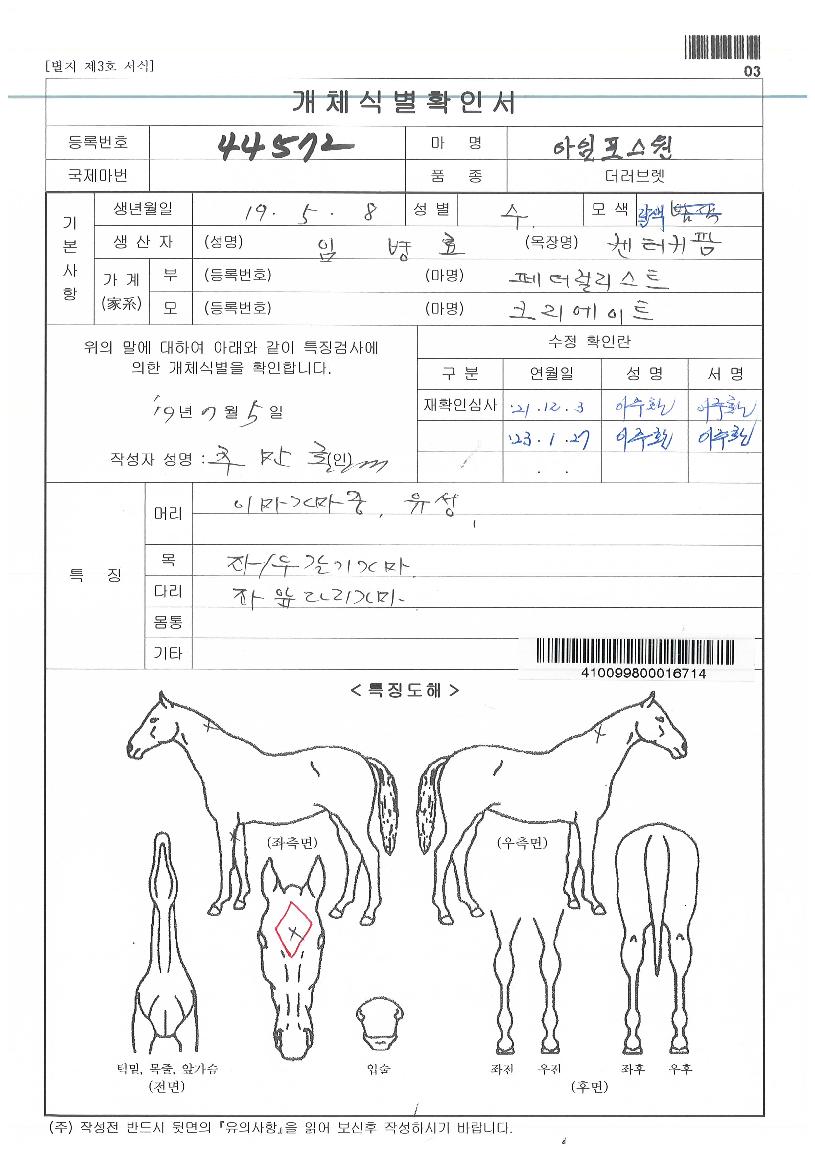 [별지 제3호 서식]
03
개체식별확인서
등록번호 44572 마 명 아임포스원
국제마번 품 종 더러브렛
기본사항
생년월일 19. 5. 8 성별 수 모색 갈색 밤색
생산자 (성명) 임 병 효 (옥장명) 첸터커팜
가계 (家系) 부 (등록번호) (마명) 페더럴리스트
모 (등록번호) (마명) 크리에이트
위의 말에 대하여 아래와 같이 특징검사에
의한 개체식별을 확인합니다.
'19년 7월 5일
작성자 성명 : (인)
수정 확인란
구 분 연월일 성 명 서 명
재확인심사 '21.12.3 이주환 이주환
'23.1.27 이주환 이주환
. .
특 징
머리 이마가마중, 유성,
목 좌/우갈기가마
다리 좌앞다리가마
몸통
기타
410099800016714
< 특징도해 >
(좌측면) (우측면)
턱밑, 목줄, 앞가슴 입술 좌전 우전 좌후 우후
(전면) (후면)
(주) 작성전 반드시 뒷면의 『유의사항』을 읽어 보신후 작성하시기 바랍니다.